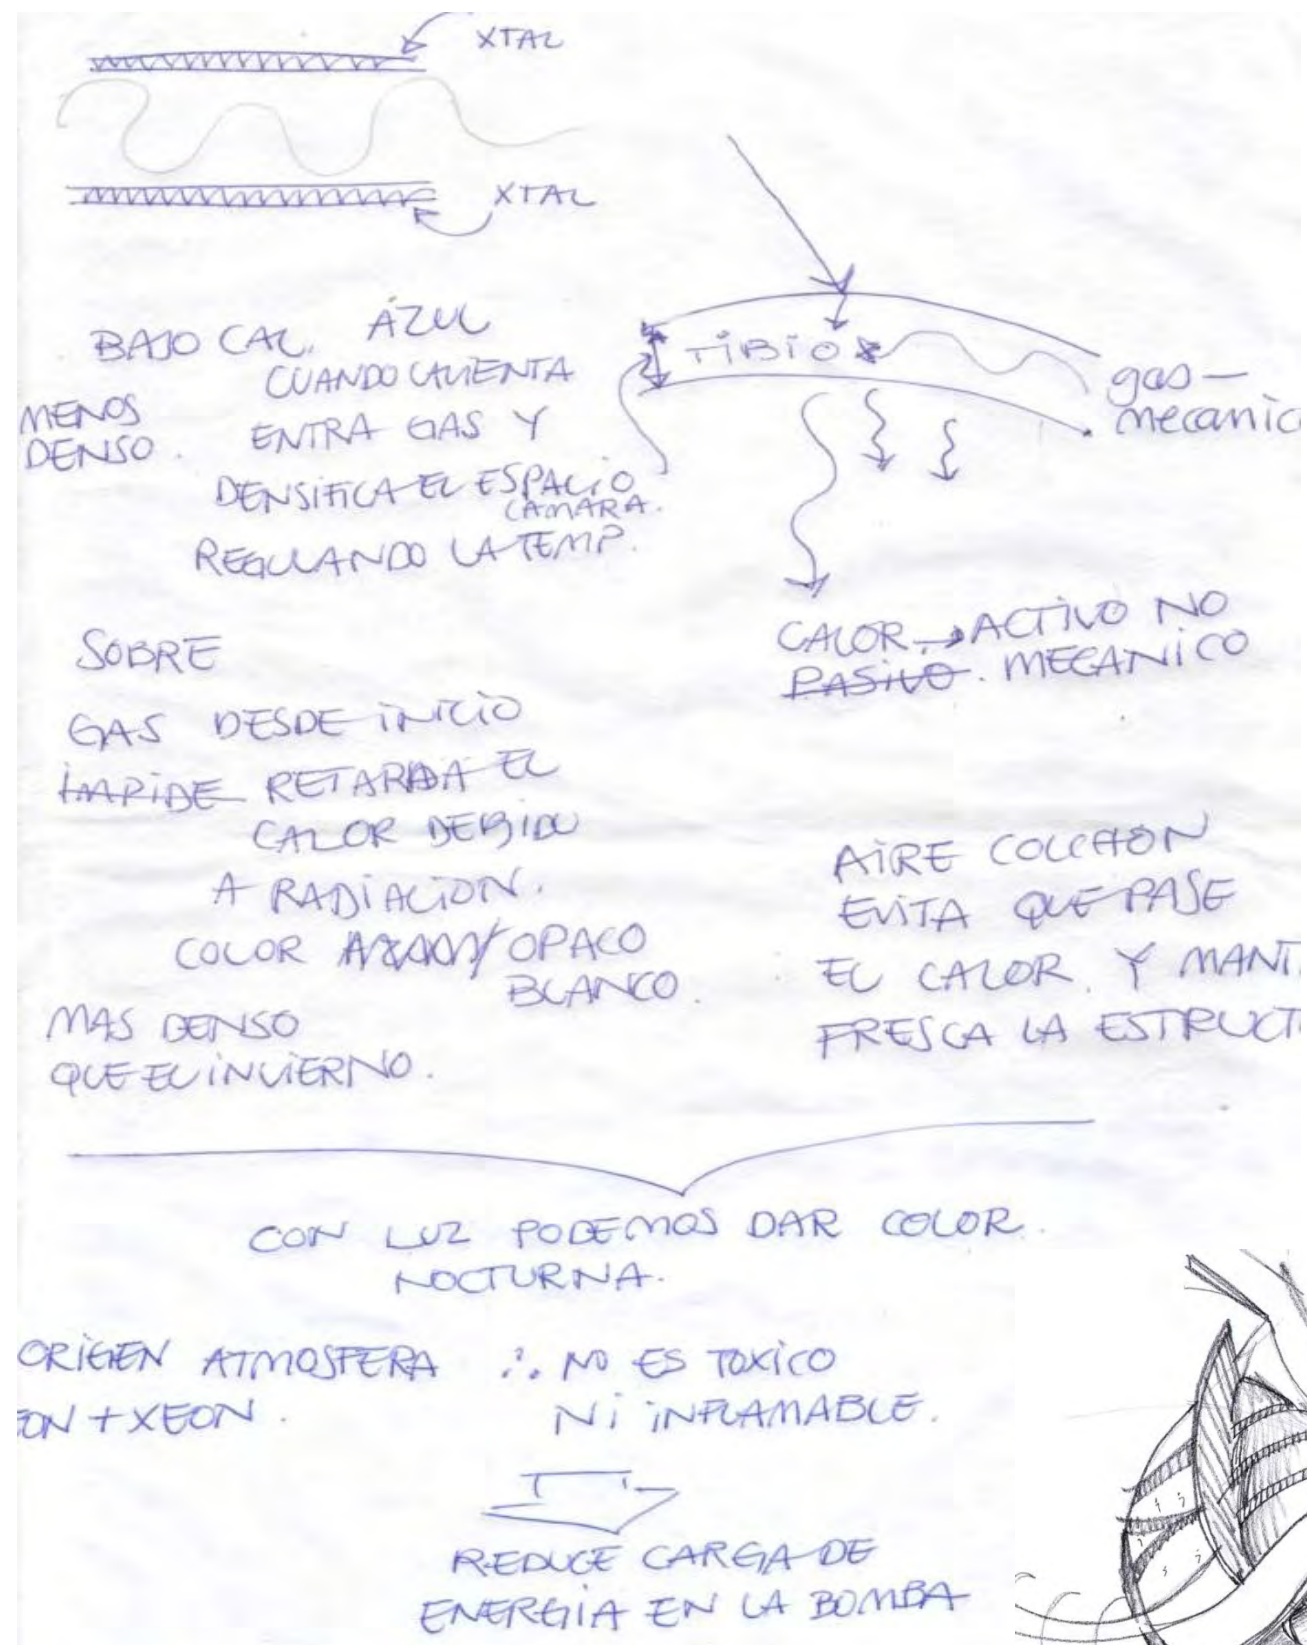 XTAL
XTAL
BAJO CAL. AZUL
CUANDO CALIENTA
MENOS
DENSO.
ENTRA GAS Y
DENSIFICA EL ESPACIO
CAMARA.
REGULANDO LA TEMP.
TIBIO
gas —
mecanic
CALOR → ACTIVO NO
PASIVO. MECANICO
SOBRE
GAS DESDE INICIO
IMPIDE RETARDA EL
CALOR DEBIDO
A RADIACION.
COLOR OPACO
BLANCO.
MAS DENSO
QUE EL INVIERNO.
AIRE COLCHON
EVITA QUE PASE
EL CALOR. Y MANT
FRESCA LA ESTRUCT
CON LUZ PODEMOS DAR COLOR.
NOCTURNA.
ORIGEN ATMOSFERA ∴ NO ES TOXICO
ON + XEON. NI INFLAMABLE.
REDUCE CARGA DE
ENERGIA EN LA BOMBA